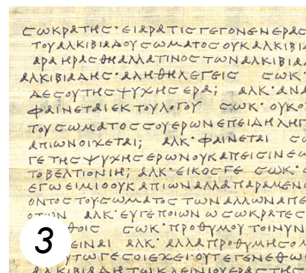 ϹΩΚΡΑΤΗϹ· ΕΙ ΑΡΑ ΤΙϹ ΓΕΓΟΝΕΝ ΕΡΑϹ
ΤΟΥ ΑΛΚΙΒΙΑΔΟΥ ϹΩΜΑΤΟϹ ΟΥΚ ΑΛΚΙΒΙ
ΑΡΑ ΗΡΑϹΘΗ ΑΛΛΑ ΤΙΝΟϹ ΤΩΝ ΑΛΚΙΒΙΑ
ΑΛΚΙΒΙΑΔΗϹ· ΑΛΗΘΗ ΛΕΓΕΙϹ ϹΩΚ
ΔΕ ϹΟΥ ΤΗϹ ΨΥΧΗϹ ΕΡΑ; ΑΛΚ· ΑΝΑ
ΦΑΙΝΕΤΑΙ ΕΚ ΤΟΥ ΛΟΓΟΥ ϹΩΚ· ΟΥΚΟ
ΤΟΥ ϹΩΜΑΤΟϹ ϹΟΥ ΕΡΩΝ ΕΠΕΙΔΗ Λ
ΑΠΙΩΝ ΟΙΧΕΤΑΙ; ΑΛΚ· ΦΑΙΝΕΤΑΙ ϹΩ
ΓΕ ΤΗϹ ΨΥΧΗϹ ΕΡΩΝ ΟΥΚ ΑΠΕΙϹΙΝ ΕΩ
ΤΟ ΒΕΛΤΙΟΝ ΙΗ; ΑΛΚ· ΕΙΚΟϹ ΓΕ ϹΩΚ·
ΕΓΩ ΕΙΜΙ Ο ΟΥΚ ΑΠΙΩΝ ΑΛΛΑ ΠΑΡΑΜΕΝ
ΟΝΤΟϹ ΤΟΥ ϹΩΜΑΤΟϹ ΤΩΝ ΑΛΛΩΝ ΑΠΕ
ΑΛΚ· ΕΥ ΓΕ ΠΟΙΩΝ Ω ϹΩΚΡΑΤΕϹ
ϹΩΚ· ΠΡΟΘΥΜΟΥ ΤΟΙΝΥΝ
3 ΕΙΝΑΙ ΑΛΚ· ΑΛΛΑ ΠΡΟΘΥΜΗϹΟΜ
ΟΥΤΩ ΓΕ ϹΟΙ ΕΧΕΙ ΟΥΤ ΕΓΕΝΕΘ